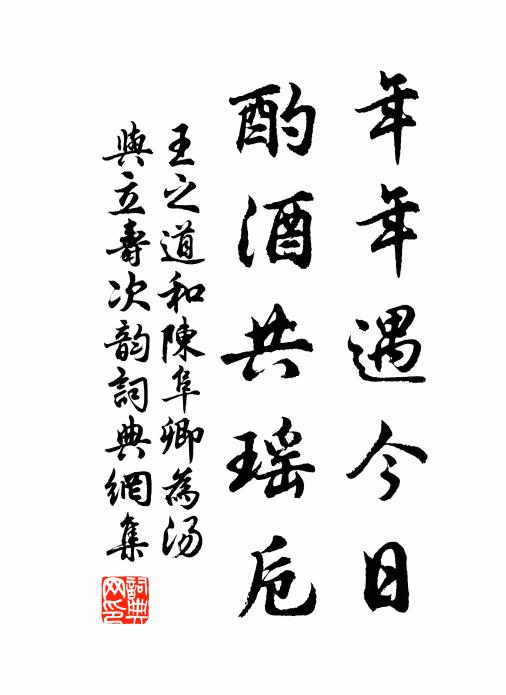 年年遇今日
酌酒共瑶卮
王之道和陳阜卿為湯
與立壽次韵詞典網集
詞典网印